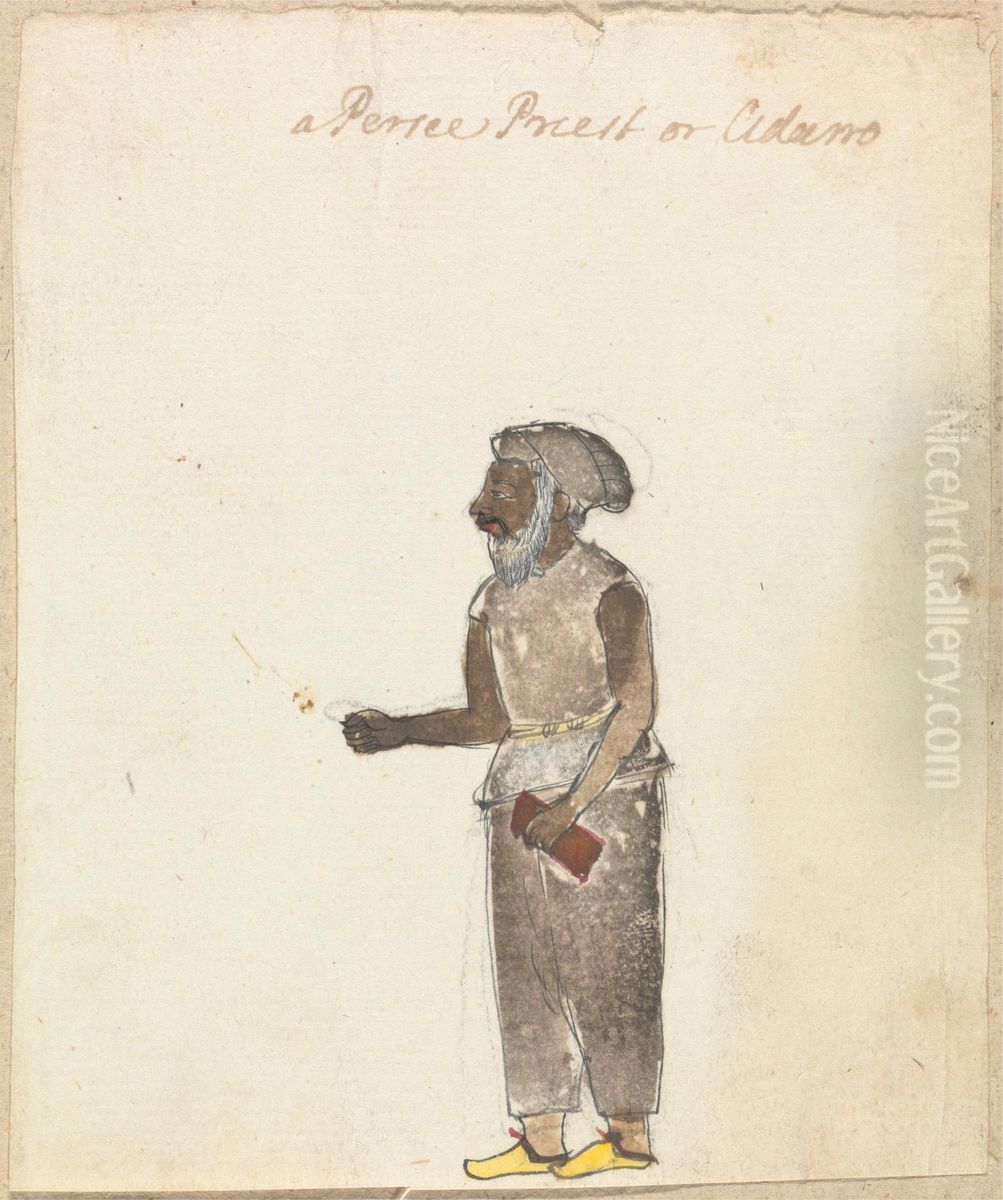 a Persee Priest or Adaro
NiceArtGallery.com